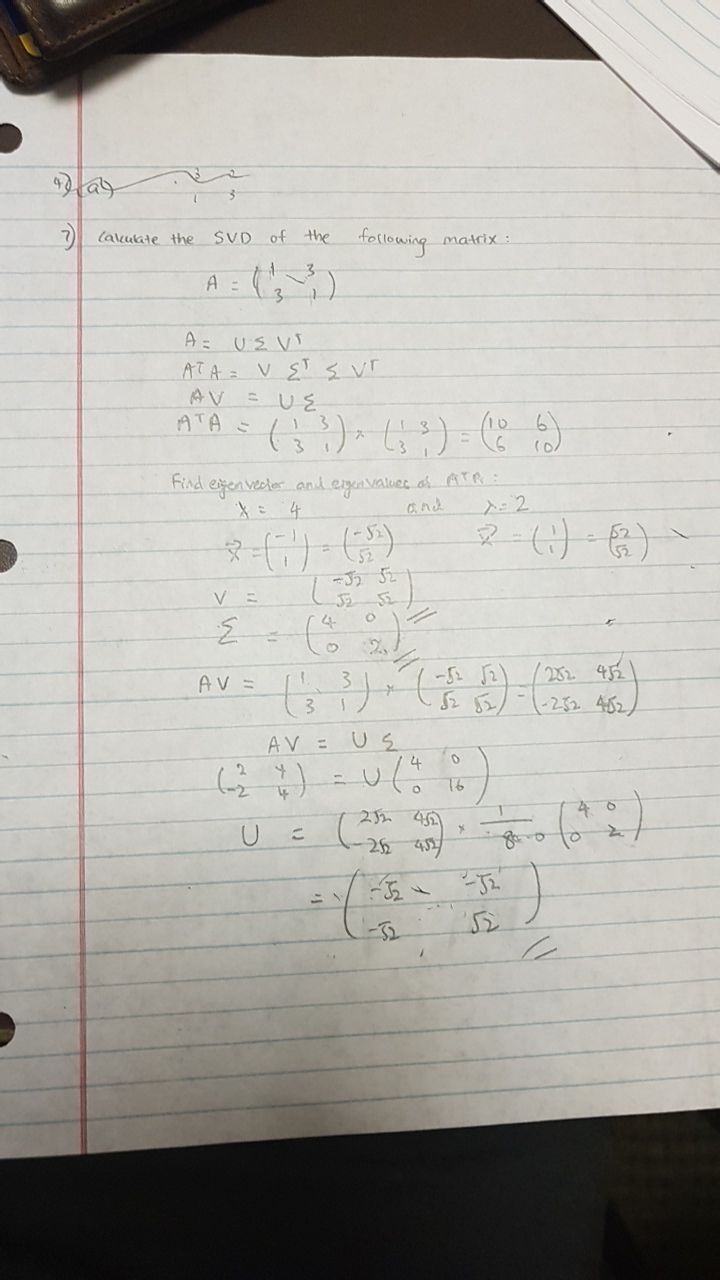 3 2
1 3
7) Calculate the SVD of the following matrix:
A = (1 3
3 1)
A = U Σ Vᵀ
AᵀA = V Σᵀ Σ Vᵀ
AV = UΣ
AᵀA = (1 3
3 1) × (1 3
3 1) = (10 6
6 10)
Find eigenvector and eigenvalues of AᵀA:
λ = 4 and λ = 2
x⃗ = (-1
1) = (-√2
√2) x⃗ = (1
1) = (√2
√2)
V = (-√2 √2
√2 √2)
Σ = (4 0
0 2)
AV = (1 3
3 1) × (-√2 √2
√2 √2) = (2√2 4√2
-2√2 4√2)
AV = U Σ
(2 4
-2 4) = U (4 0
0 16)
U = (2√2 4√2
-2√2 4√2) × 1
8-0 (4 0
0 2)
= (-√2 -√2
-√2 √2)